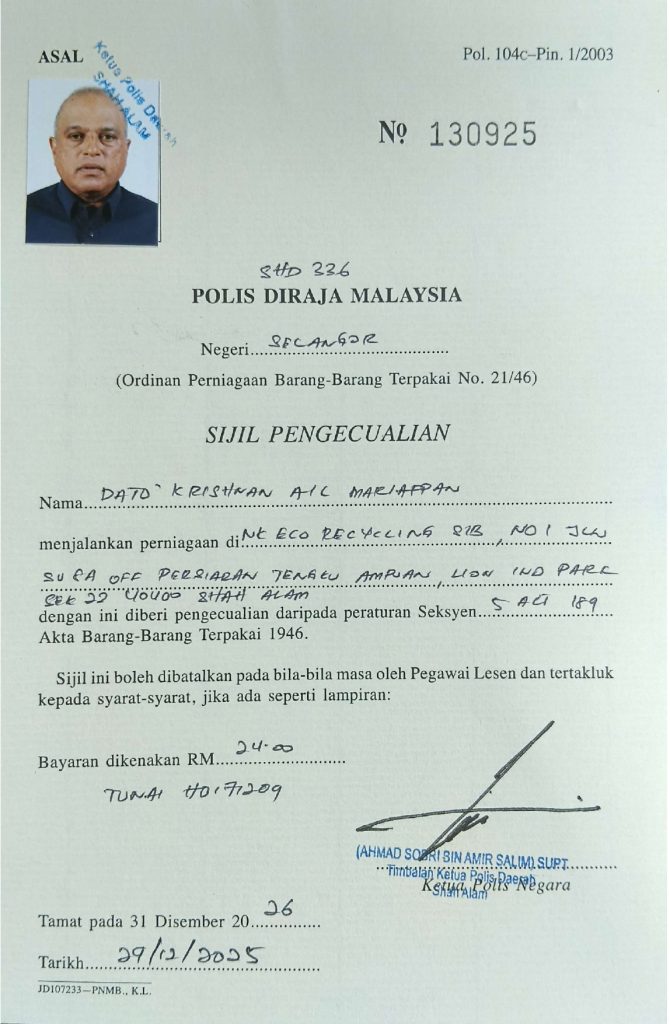 ASAL
Pol. 104c–Pin. 1/2003
Ketua Polis Daerah
SHAH ALAM
Nọ 130925
SHD 336
POLIS DIRAJA MALAYSIA
Negeri SELANGOR
(Ordinan Perniagaan Barang-Barang Terpakai No. 21/46)
SIJIL PENGECUALIAN
Nama DATO' KRISHNAN A/L MARIAPPAN
menjalankan perniagaan di NK ECO RECYCLING S/B, NO 1 JLN
SU PA OFF PERSIARAN TENGKU AMPUAN, LION IND PARK
SEK 22 40400 SHAH ALAM
dengan ini diberi pengecualian daripada peraturan Seksyen 5 AKT 189
Akta Barang-Barang Terpakai 1946.
Sijil ini boleh dibatalkan pada bila-bila masa oleh Pegawai Lesen dan tertakluk
kepada syarat-syarat, jika ada seperti lampiran:
Bayaran dikenakan RM 24.00
TUNAI H0171209
(AHMAD SOBRI BIN AMIR SALIM) SUPT
Timbalan Ketua Polis Daerah
Shah Alam
Ketua Polis Negara
Tamat pada 31 Disember 20 26
Tarikh 29/12/2025
JD107233—PNMB., K.L.